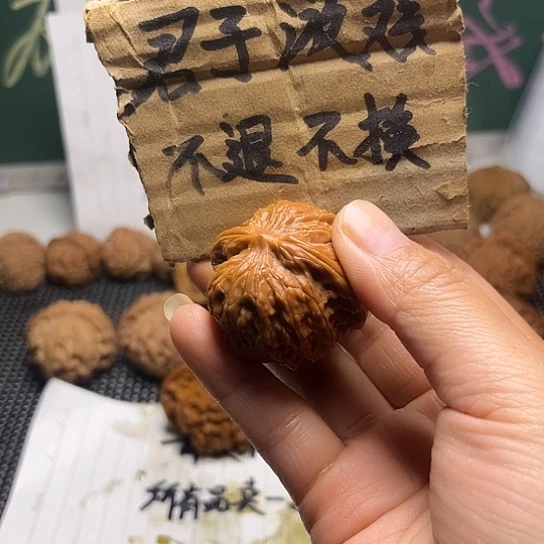 君子游戏
不退不换
所有品卖一